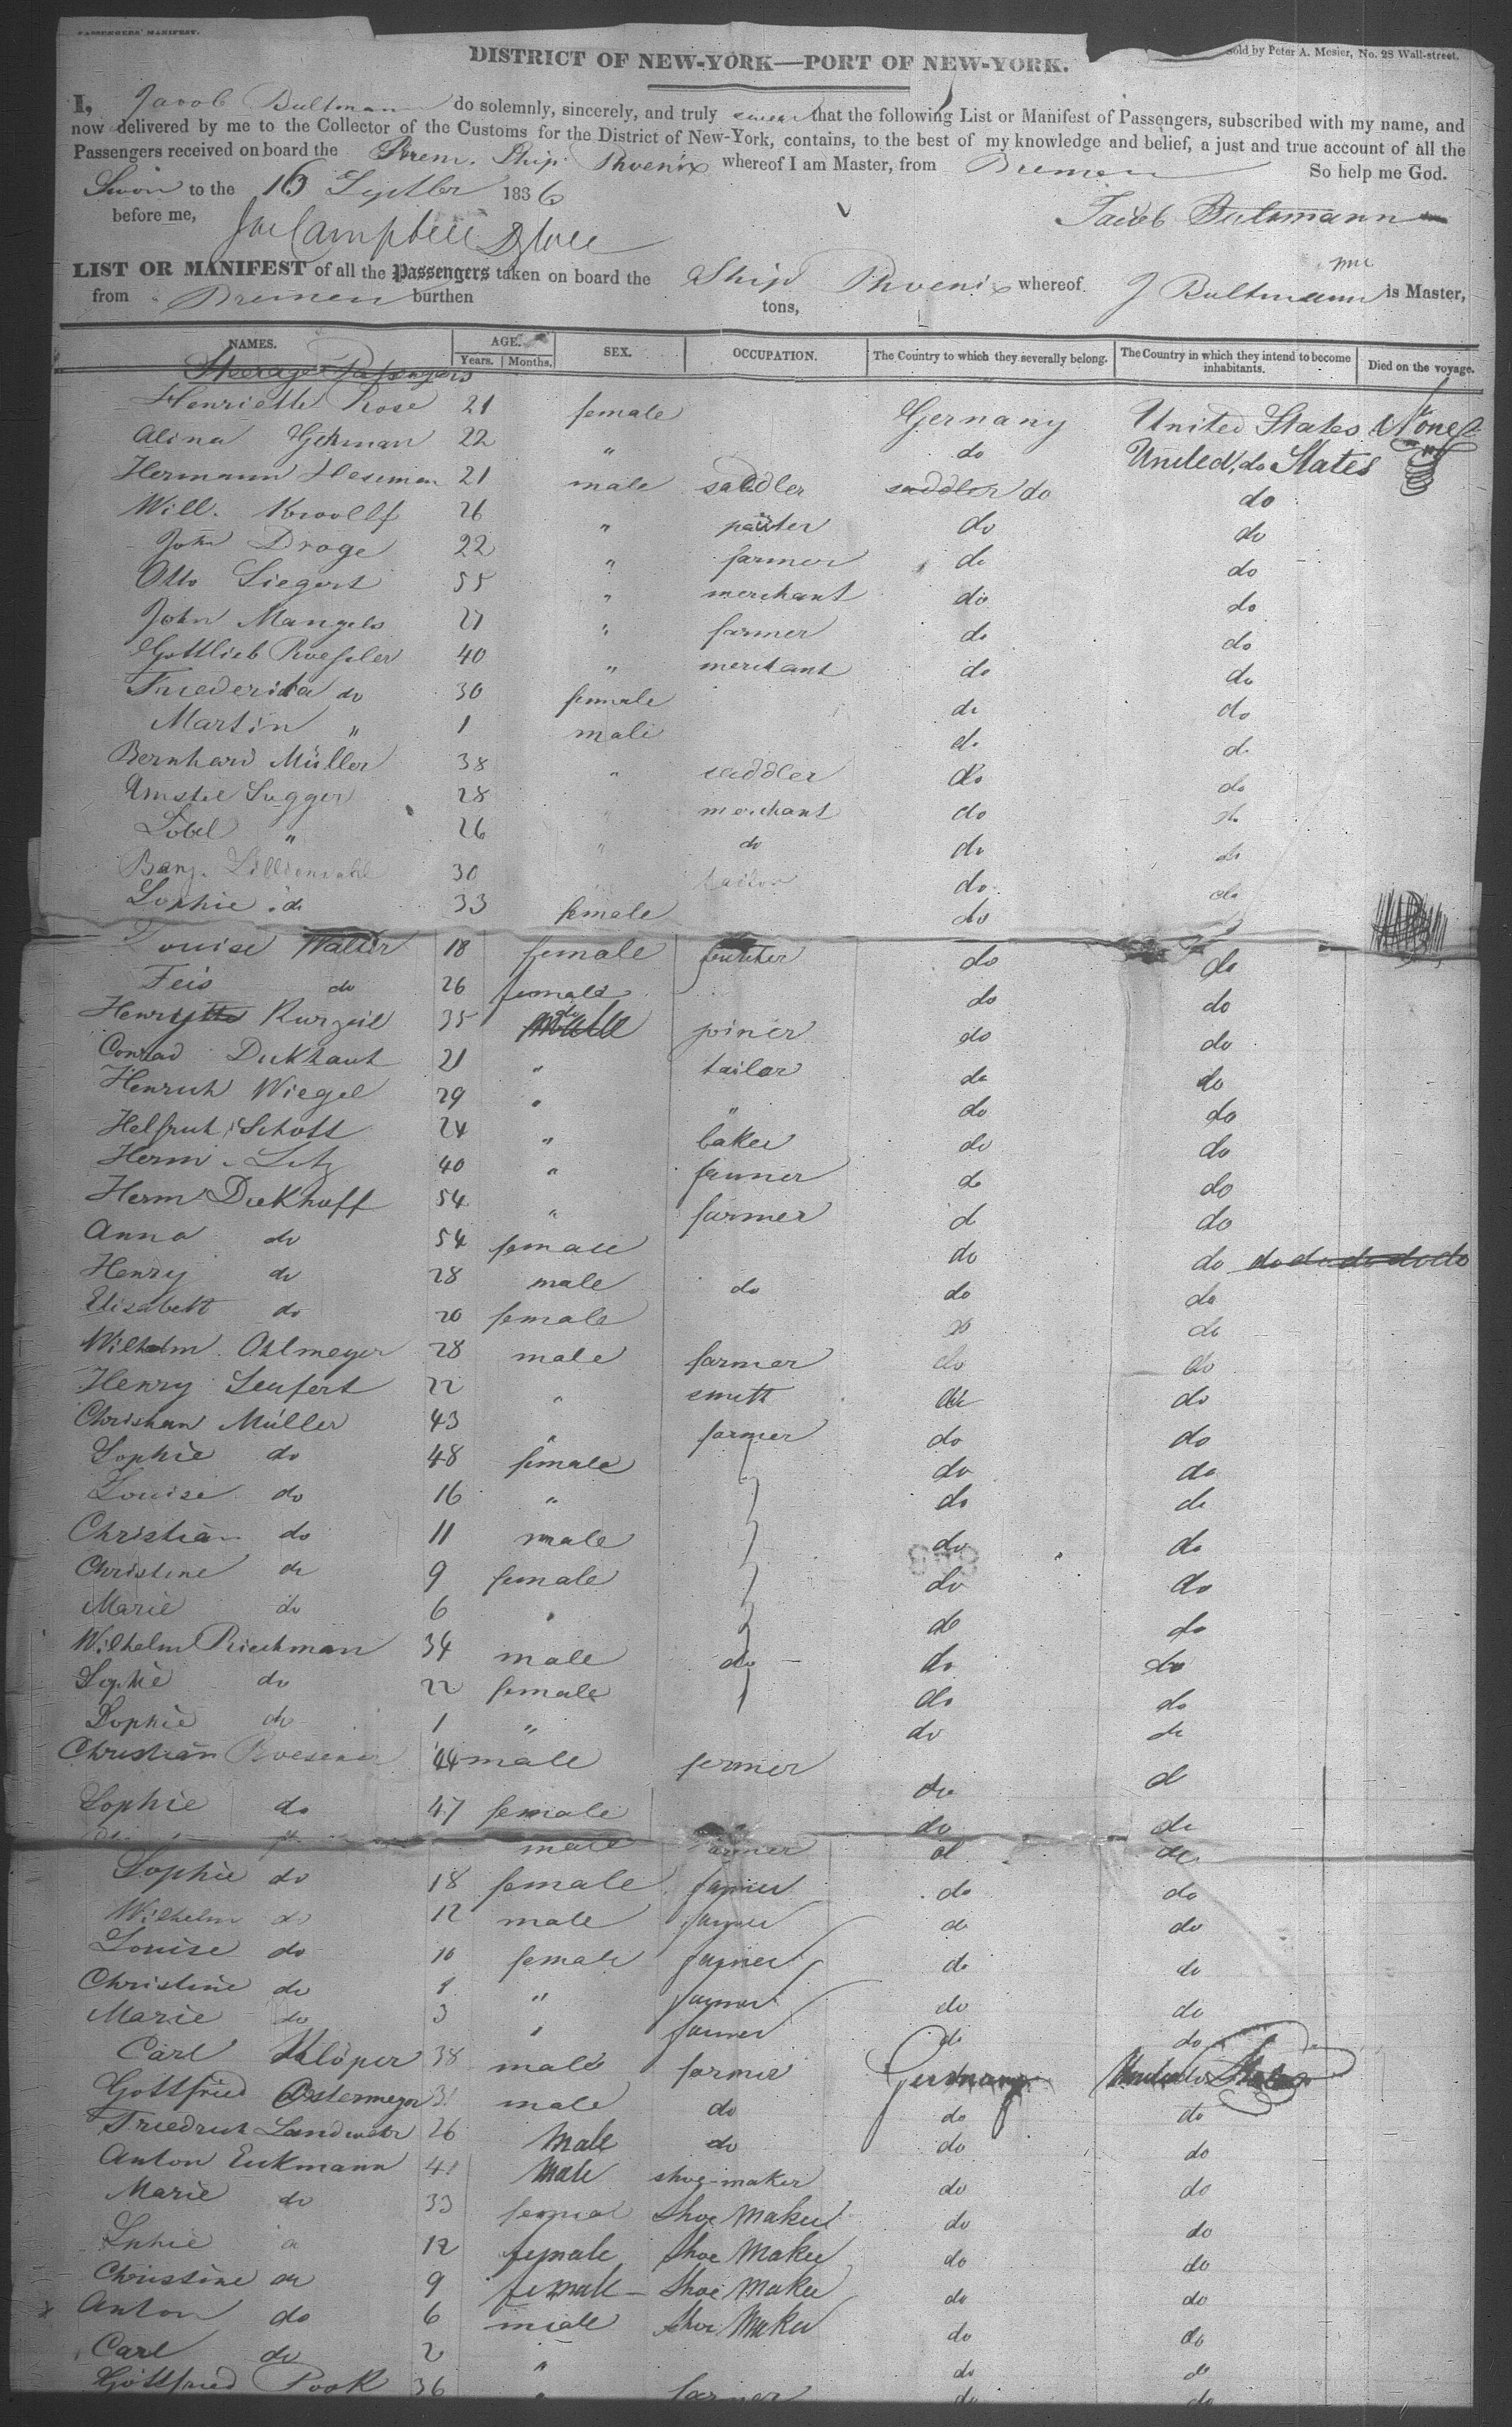 PASSENGERS' MANIFEST.
Sold by Peter A. Mesier, No. 28 Wall-street.
DISTRICT OF NEW-YORK—PORT OF NEW-YORK.
I, Jacob Bultmann do solemnly, sincerely, and truly swear that the following List or Manifest of Passengers, subscribed with my name, and
now delivered by me to the Collector of the Customs for the District of New-York, contains, to the best of my knowledge and belief, a just and true account of all the
Passengers received on board the Brem. Ship Phoenix whereof I am Master, from Bremen So help me God.
Sworn to the 16 Septber 1836
before me, Jacob Bultmann
Campbell
LIST OR MANIFEST of all the Passengers taken on board the Ship Phoenix whereof J Bultmann is Master,
from Bremen burthen tons,
NAMES. AGE. Years. Months. SEX. OCCUPATION. The Country to which they severally belong. The Country in which they intend to become inhabitants. Died on the voyage.
Steerage Passengers
Henriette Rose 21 female Germany United States None
Alina 22 " do United do States
Hermann 21 male saddler saddler do do
Will. 26 " do do
John Droge 22 " farmer do do
Otto Siegert 55 " merchant do do
John Mangels 27 " farmer do do
Gottlieb Roessler 40 " merchant do do
Friederika do 30 female do do
Martin " 1 male do do
Bernhard Müller 38 " saddler do do
28 merchant do do
Löbel " 26 " do do do
Banj. 30 tailor do do
Sophie do 33 female do
Louise Walter 18 female butcher do do
Feis do 26 female do do
Kurzeil 35 male joiner do do
Conrad Dickhaut 21 " tailor do do
Henrich Wiegel 29 " " do do
Helfrich Schott 24 " baker do do
Herm. 40 " farmer do do
Herm Dickhoff 54 " farmer do do
Anna do 54 female do do do do do do do
Henry do 28 male do do do
Elisabeth do 20 female do do
Wilhelm Ohlmeyer 28 male farmer do do
Henry Seufert 22 " smith do do
Christian Müller 43 " farmer do do
Sophie do 48 female do do
Louise do 16 " do do
Christian do 11 male do do
Christine do 9 female do do
Marie do 6 " do do
Wilhelm Rieckman 34 male do do do
Sophie do 22 female do do
Sophie do 1 " do do
Christian Roesener 44 male farmer do do
Sophie do 47 female do do
male farmer do do
Sophie do 18 female farmer do do
Wilhelm do 12 male farmer do do
Louise do 10 female farmer do do
Christine do " farmer do do
Marie do 3 " farmer do do
Carl Klöper 38 male farmer Germany United States
Gottfried Ostermeyer male do do do
Friedrich Landwehr 26 male do do do
Anton Eickmann 41 male shoe-maker do do
Marie do 33 female Shoe Maker do do
12 female Shoe Maker do do
Christine do 9 female Shoe Maker do do
Anton do 6 male Shoe Maker do do
Carl do 2 " do do
Gottfried Pook 36 " farmer do do